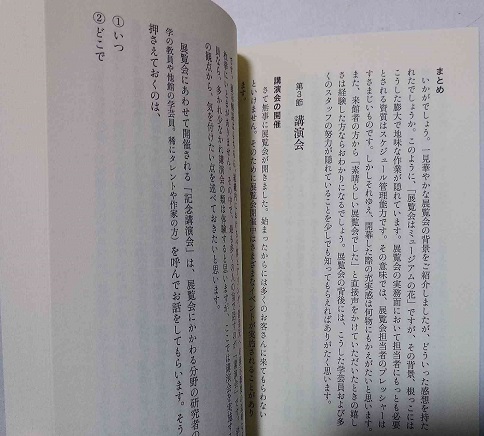 まとめ
いかがでしょう。一見華やかな展覧会の背景をご紹介しましたが、どういった感想を持た
れたでしょうか。このように、「展覧会はミュージアムの花」ですが、その背景、根っこには
こうした膨大で地味な作業が隠れています。展覧会の実務面において担当者にもっとも必要
とされる資質はスケジュール管理能力です。その意味では、展覧会担当者のプレッシャーは
すさまじいものです。しかしそれゆえ、開幕した際の充実感は何物にもかえがたいと思います。
また、来館者の方から「素晴らしい展覧会でした」と直接声をかけていただいたときの嬉し
さは経験した方ならおわかりになるでしょう。展覧会の背後には、こうした学芸員および多
くのスタッフの努力が隠れていることを少しでも知ってもらえればありがたく思います。
第3部 講演会
講演会の開催
さて無事に展覧会が開きました。始まったからには多くのお客さんに来てもらわない
といけません。そのために展覧会開催中はさまざまなイベントが実施されることがあり
ます。
の観点から、気を付けたい点を述べておきたいと思います。
展覧会にあわせて開催される「記念講演会」は、展覧会にかかわる分野の研究者の
学の教員や他館の学芸員。稀にタレントや作家の方）を呼んでお話をしてもらいます。そう
押さえておくのは、
①いつ
②どこで